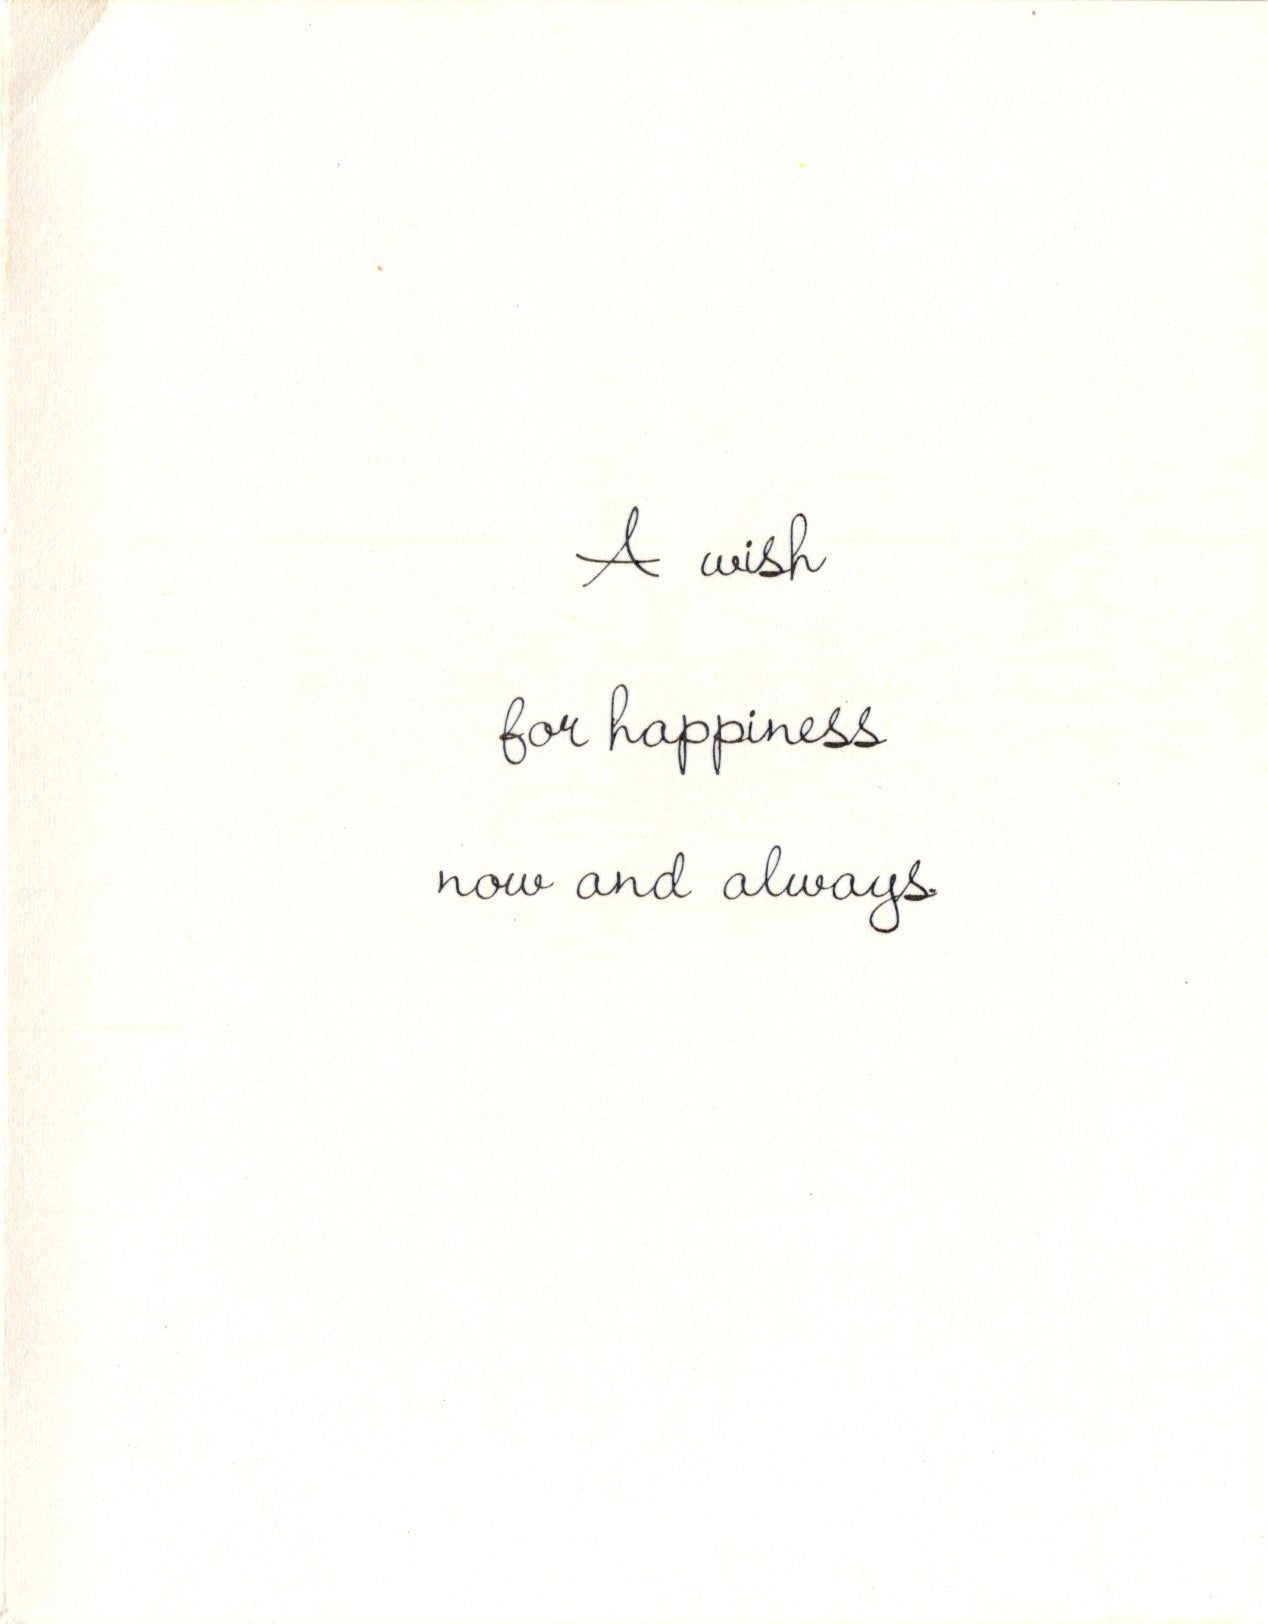 A wish
for happiness
now and always.